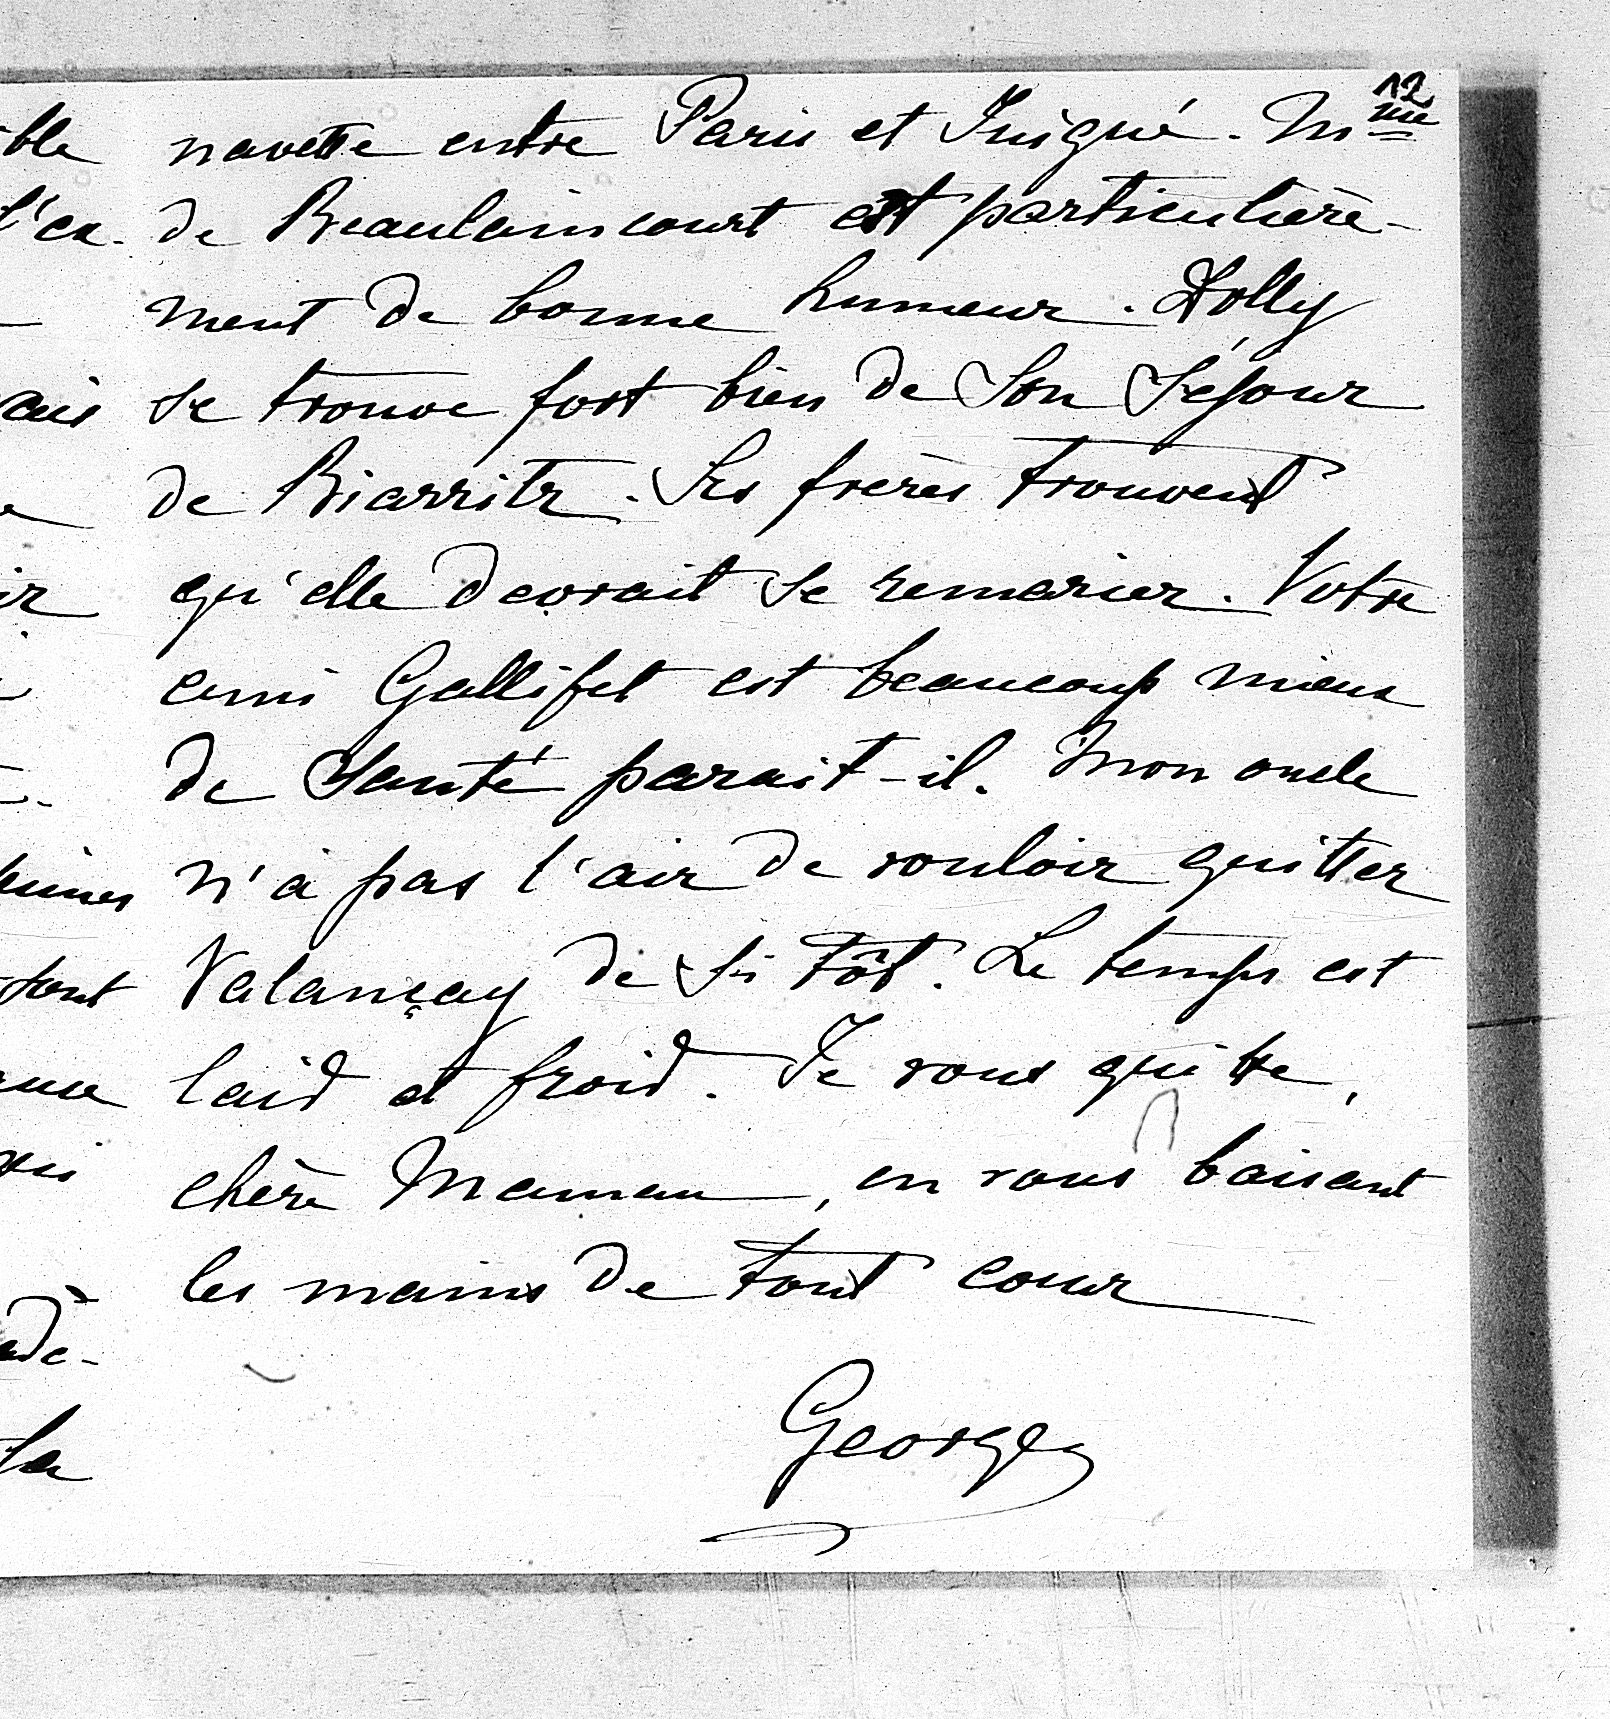 12
navette entre Paris et Juigné. Mme
de Beaulaincourt est particulière-
ment de bonne humeur. Dolly
se trouve fort bien de son séjour
de Biarritz. Ses frères trouvent
qu'elle devrait se remarier. Votre
ami Gallifet est beaucoup mieux
de santé parait-il. Mon oncle
n'a pas l'air de vouloir quitter
Valançay de si tôt. Le temps est
laid et froid. Je vous quitte,
chère Maman, en vous baisant
les mains de tout cœur
Georges